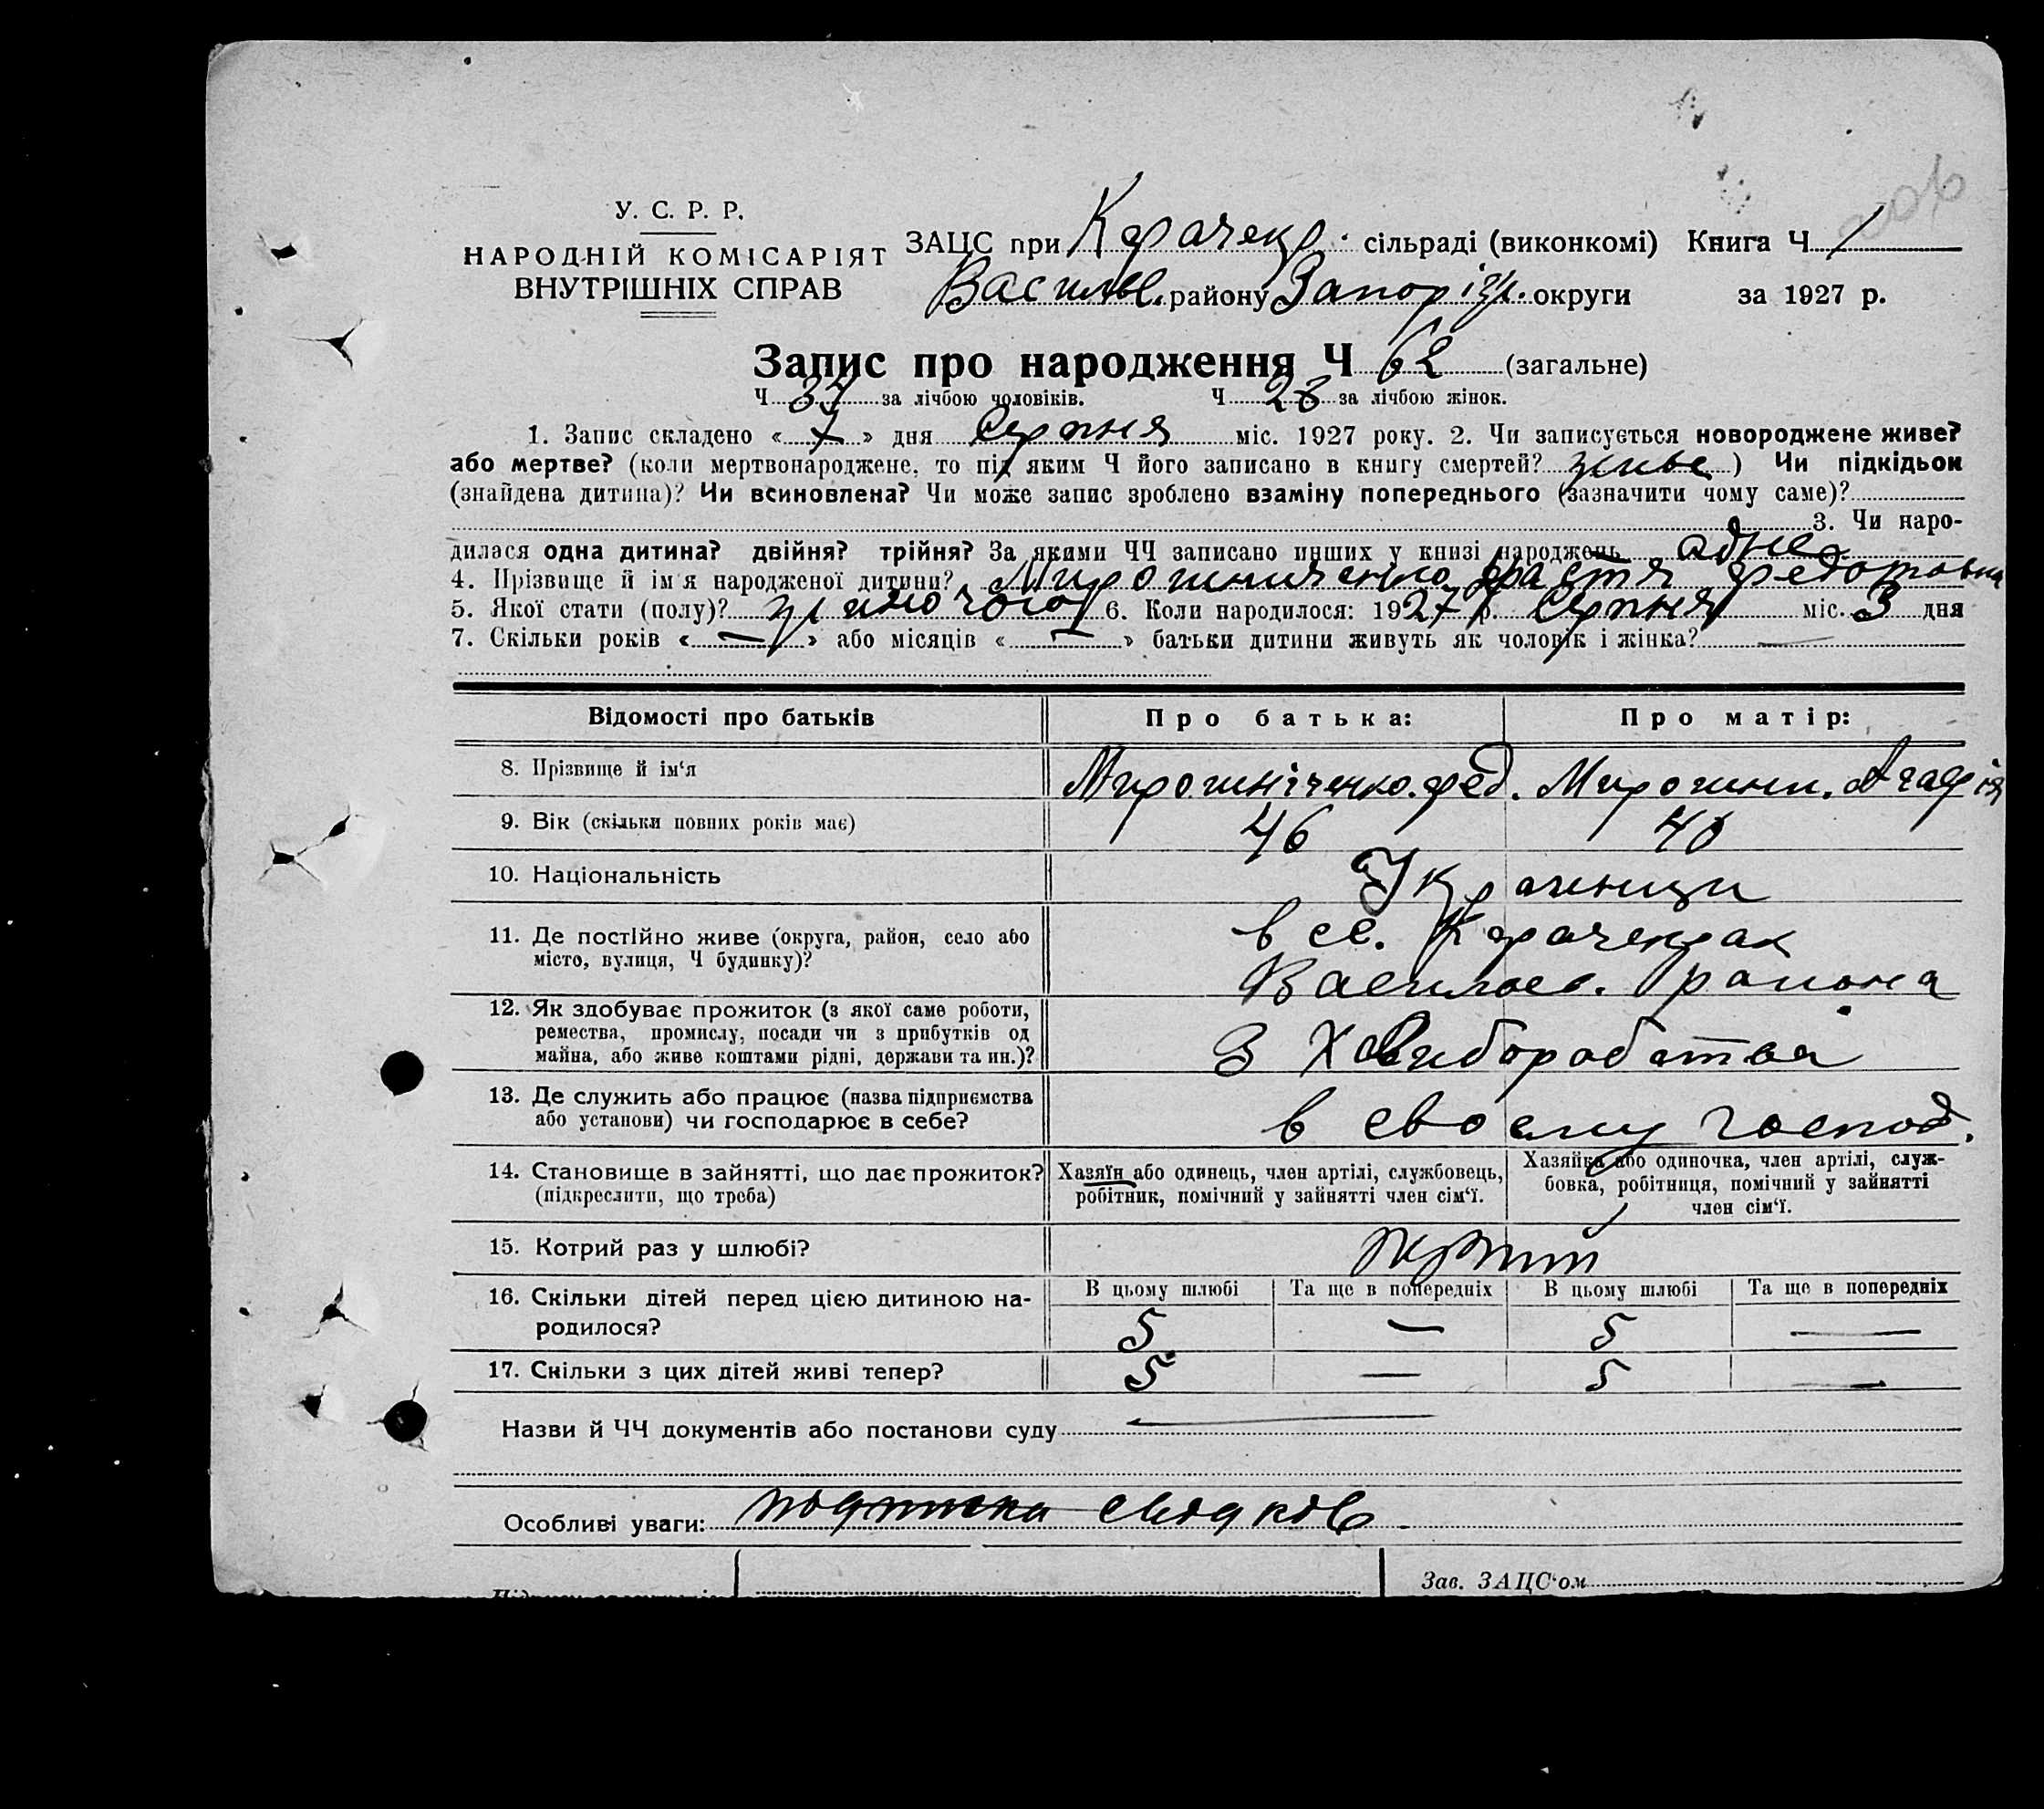 У. С. Р. Р.
НАРОДНІЙ КОМІСАРІЯТ
ВНУТРІШНІХ СПРАВ
ЗАЦС при Карачекр. сільраді (виконкомі) Книга Ч. 1
Василів. району Запоріж. округи за 1927 р.
Запис про народження Ч 62 (загальне)
Ч 34 за лічбою чоловіків. Ч 28 за лічбою жінок.
1. Запис складено «7» дня Серпня міс. 1927 року. 2. Чи записується новороджене живе?
або мертве? (коли мертвонароджене, то під яким Ч його записано в книгу смертей? живе) Чи підкідьок
(знайдена дитина)? Чи всиновлена? Чи може запис зроблено взаміну попереднього (зазначити чому саме)?
3. Чи наро-
дилася одна дитина? двійня? трійня? За якими ЧЧ записано инших у книзі народжень одне
4. Прізвище й ім'я народженої дитини? Мирошниченко Федотовна
5. Якої стати (полу)? жіночого 6. Коли народилося: 1927 р. Серпня міс. 3 дня
7. Скільки років «—» або місяців «—» батьки дитини живуть як чоловік і жінка? —
Відомості про батьків
Про батька:
Про матір:
8. Прізвище й ім'я
Мирошніченко. Фед.
Мирошнич. Агафія
9. Вік (скільки повних років має)
46
40
10. Національність
Украінци
11. Де постійно живе (округа, район, село або
місто, вулиця, Ч будинку)?
в се. Карачекрак
Василів. района
12. Як здобуває прожиток (з якої саме роботи,
ремества, промислу, посади чи з прибутків од
майна, або живе коштами рідні, держави та ин.)?
З Хлиборобства
13. Де служить або працює (назва підприємства
або установи) чи господарює в себе?
в своему господ.
14. Становище в зайнятті, що дає прожиток?
(підкреслити, що треба)
Хазяїн або одинець, член артілі, службовець,
робітник, помічний у зайнятті член сім'ї.
Хазяйка або одиночка, член артілі, служ-
бовка, робітниця, помічний у зайнятті
член сім'ї.
15. Котрий раз у шлюбі?
16. Скільки дітей перед цією дитиною на-
родилося?
В цьому шлюбі
Та ще в попередніх
В цьому шлюбі
Та ще в попередніх
5 — 5 —
17. Скільки з цих дітей живі тепер?
5 — 5 —
Назви й ЧЧ документів або постанови суду —
Особливі уваги: подписка свидков
Зав. ЗАЦС'ом